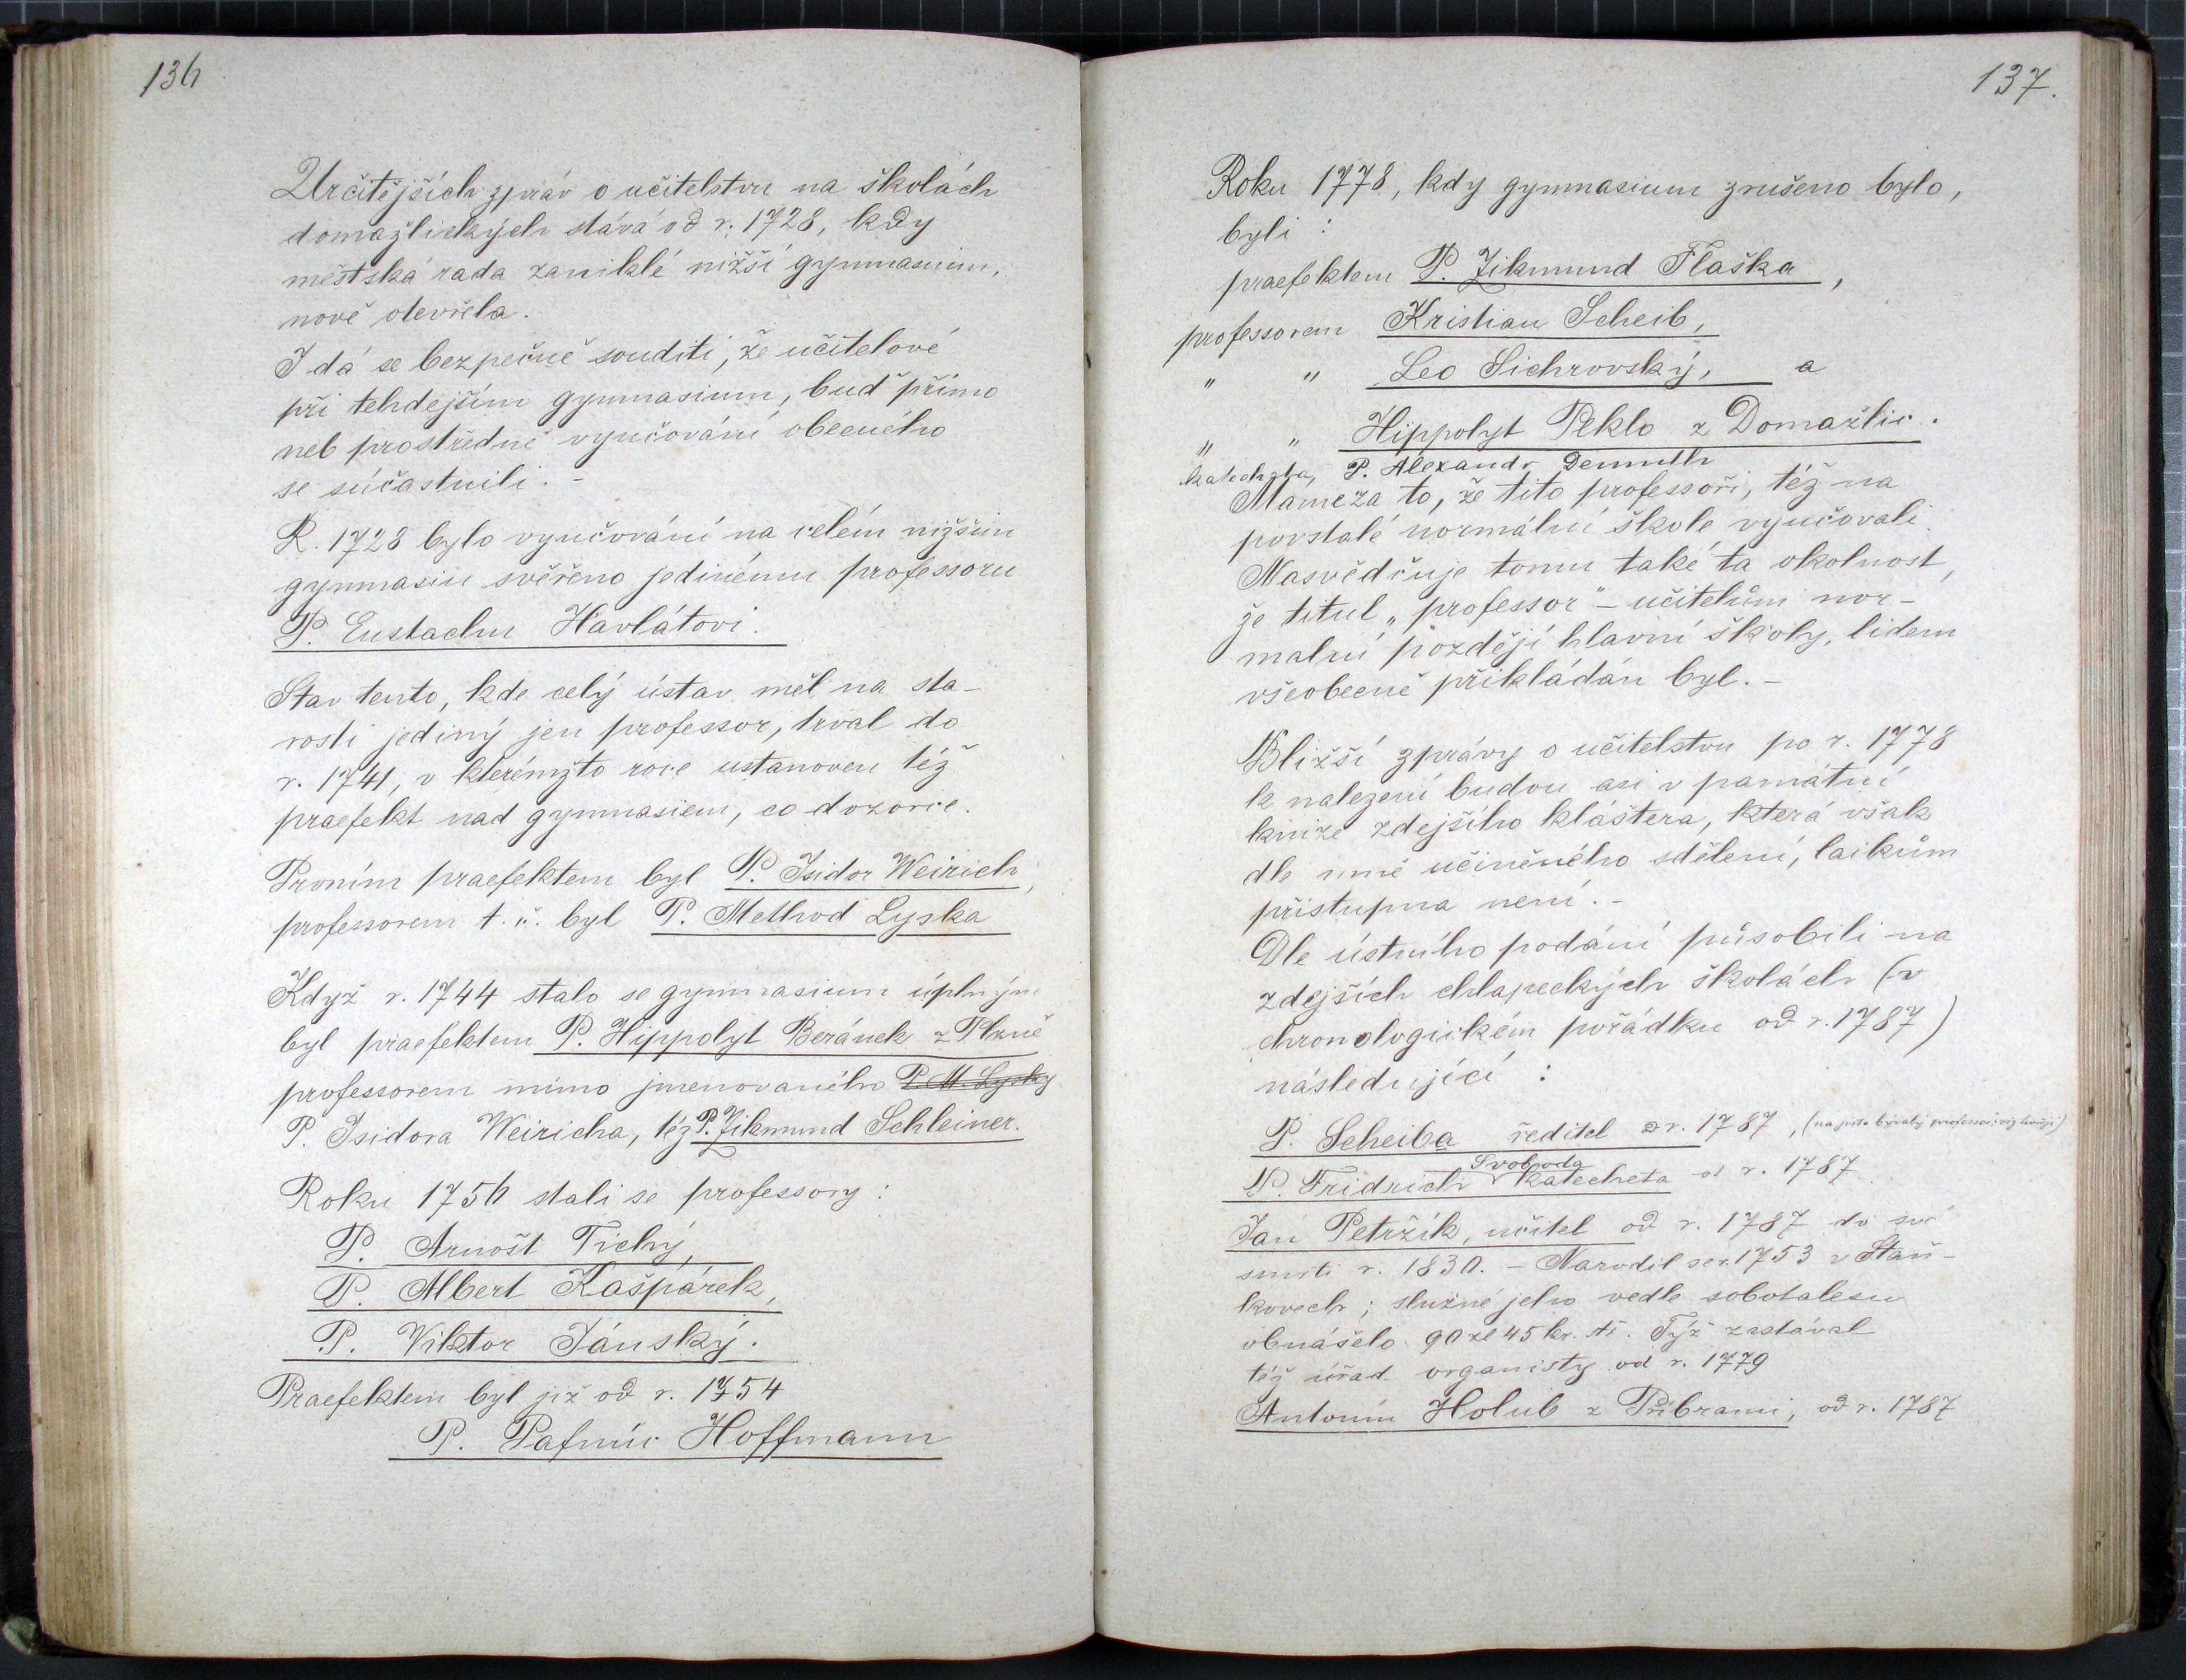 136
Určitějších zpráv o učitelstvu na školách
domažlických stává od r. 1728, kdy
městská rada zaniklé nižší gymnasium,
nově otevřela.
I dá se bezpečně souditi, že učitelové
při tehdejším gymnasium, buď přímo
neb prostředně vyučování obecného
se súčastnili. –
R. 1728 bylo vyučování na celém nižším
gymnasiu svěřeno jedinému professoru
P. Eustachu Havlátovi.
Stav tento, kde celý ústav měl na sta-
rosti jediný jen professor, trval do
r. 1741, v kterémžto roce ustanoven též
praefekt nad gymnasiem, co dozorce.
Prvním praefektem byl P. Isidor Weirich,
professorem t. č. byl P. Method Lyska
Když r. 1744 stalo se gymnasium úplným
byl praefektem P. Hippolyt Beránek z Plzně
professorem mimo jmenovaného P. M. Lysky
P. Isidora Weiricha, též P. Zikmund Schleiner.
Roku 1756 stali se professory:
P. Arnošt Tichý,
P. Albert Kašpárek,
P. Viktor Jánský.
Praefektem byl již od r. 1754
P. Pafnúc Hoffmann
137.
Roku 1778, kdy gymnasium zrušeno bylo,
byli:
praefektem P. Zikmund Flaška,
professorem Kristian Scheib,
" " Leo Sichrovský, a
" " Hippolyt Peklo z Domažlic.
katecheta, P. Alexandr Demuth
Máme za to, že tito professoři, též na
povstalé normální škole vyučovali.
Nasvědčuje tomu také ta okolnost,
že titul „professor" – učitelům nor-
malní později hlavní školy, lidem
všeobecně přikládán byl. –
Bližší zprávy o učitelstvu po r. 1778
k nalezení budou asi v památní
knize zdejšího kláštera, která však
dle mně učiněného sdělení, laikům
přístupna není. –
Dle ústního podání působili na
zdejších chlapeckých školách (v
chronologickém pořádku od r. 1787)
následující:
P. Scheiba ředitel od r. 1787, (na jisto bývalý professor; viz hořeji)
P. Fridrich Svoboda katecheta od r. 1787
Jan Petržík, učitel od r. 1787 do své
smrti r. 1830. – Narodil se r. 1753 v Staň-
kovech; služné jeho vedle sobotalesu
obnášelo 90 zl 45 kr. Týž zastával
též úřad organisty od r. 1779
Antonín Holub z Příbrami, od r. 1787